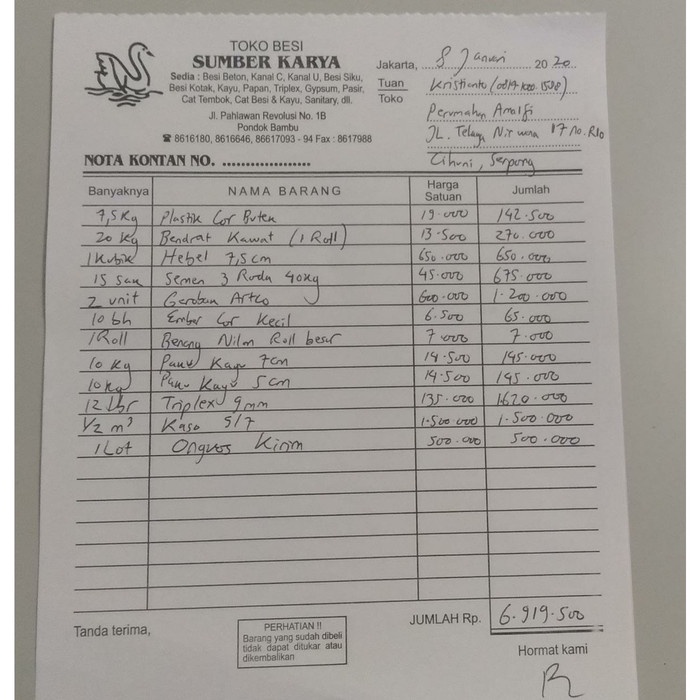 TOKO BESI
SUMBER KARYA
Sedia : Besi Beton, Kanal C, Kanal U, Besi Siku,
Besi Kotak, Kayu, Papan, Triplex, Gypsum, Pasir,
Cat Tembok, Cat Besi & Kayu, Sanitary, dll.
Jl. Pahlawan Revolusi No. 1B
Pondok Bambu
☎ 8616180, 8616646, 86617093 - 94 Fax : 8617988
Jakarta, 8 Januari 2020
Tuan
Toko
Kristianto
Perumahan Amalfi
JL. Telaga Nirwana 17 No.
Cihuni, Serpong
NOTA KONTAN NO. ....................
Banyaknya NAMA BARANG Harga Satuan Jumlah
7,5 Kg Plastik Cor Buten 19.000 142.500
20 kg Bendrat Kawat (1 Roll) 13.500 270.000
1 Kubik Hebel 7,5 cm 650.000 650.000
15 sak Semen 3 Roda 40kg 45.000 675.000
2 unit Gerobak Artco 600.000 1.200.000
10 bh Ember Cor Kecil 6.500 65.000
1 Roll Benang Nilon Roll besar 7.000 7.000
10 Kg Paku Kayu 7cm 14.500 145.000
10 kg Paku Kayu 5cm 14.500 145.000
12 Lbr Triplex 9mm 135.000 1620.000
1/2 m³ Kaso 5/7 1.500.000 1.500.000
1 Lot Ongkos Kirim 500.000 500.000
JUMLAH Rp. 6.919.500
Tanda terima,
PERHATIAN !!
Barang yang sudah dibeli
tidak dapat ditukar atau
dikembalikan
Hormat kami